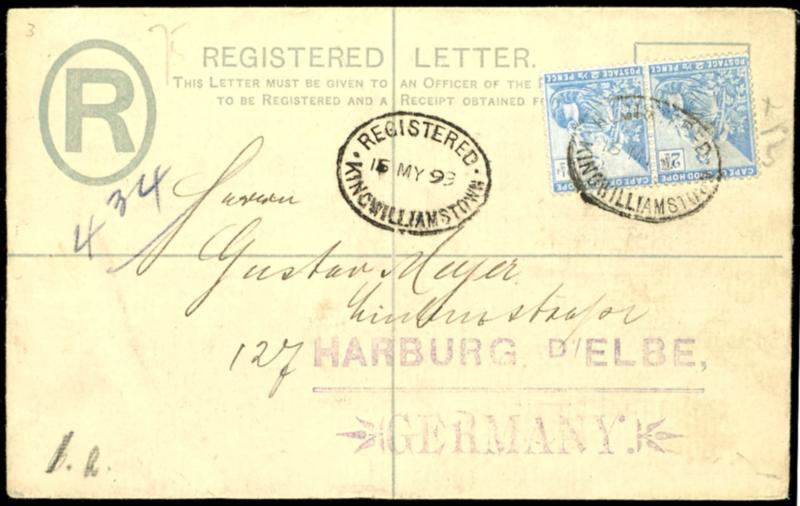 3
R
REGISTERED LETTER.
THIS LETTER MUST BE GIVEN TO AN OFFICER OF THE
TO BE REGISTERED AND A RECEIPT OBTAINED
POSTAGE 2½ PENCE POSTAGE 2½ PENCE
CAPE OF CAPE OF GOOD HOPE
REGISTERED
15 MY 99
KINGWILLIAMSTOWN
KINGWILLIAMSTOWN
434
Herrn
Gustav Meyer
Lindenstrasse
127 HARBURG D/ELBE,
GERMANY.